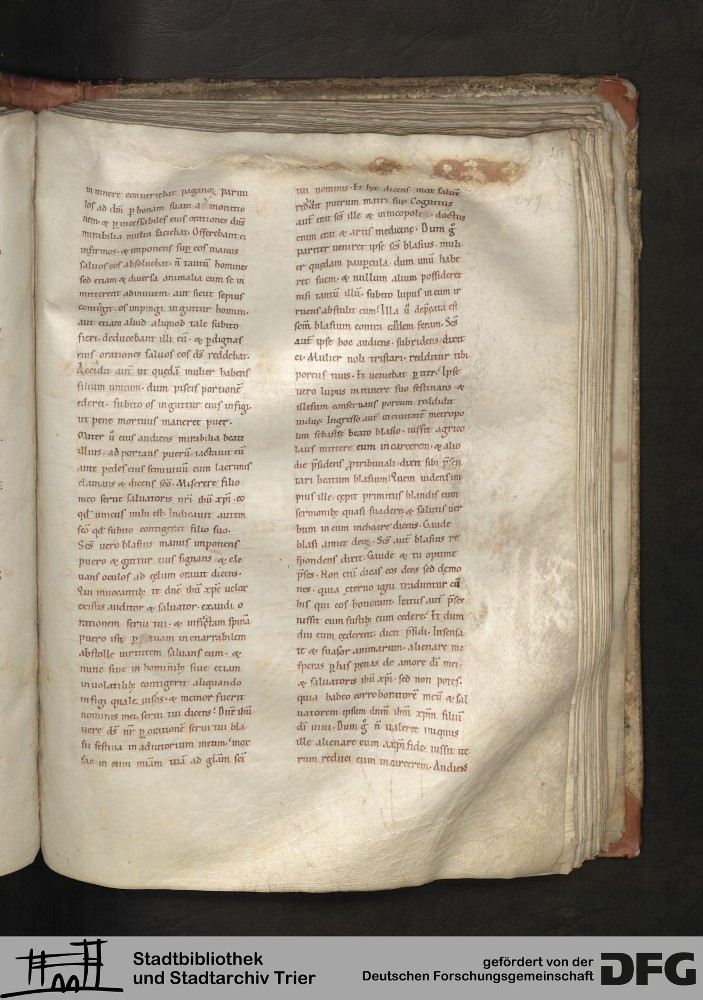 in itinere conveniebat paganoꝝ parvu
los ad dm̄ ꝑ bonam suam a monitio
nem · & ꝑ incessabiles eius orationes dn̄s
mirabilia multa faciebat · Offerebant ei
infirmos · & imponens suꝑ eos manus
salvos eos absolvebat · n̄ tantū homines
sed etiam & diversa animalia cum se in
mitterent adinvicem · aut sicut sepius
contigit · os impingi in guttur homini ·
aut etiam aliud aliquod tale subito
fieri · deducebant illi eū · & ꝑ dignas
eius orationes salvos eos ds̄ reddebat ·
Accidit aut̄ ut quedā mulier habens
filium unicum · dum piscis portionē
ederet · subito os in guttur eius infigi ·
ut pene mortuus maneret puer ·
Mater ū eius audiens mirabilia beati
illius · ad portans puerū iactavit eū
ante pedes eius semivivū cum lacrimis
clamans & dicens sc̄o · Miserere filio
meo serve salvatoris nr̄i ihū xp̄i · eo
qđ unicus mihi est · Indicavit autem
sc̄o qđ subito contigerit filio suo ·
Sc̄s vero blasius manus imponens
puero & guttur eius signans · & ele
vans oculos ad cęlum oravit dicens ·
Qui invocantibꝫ te dn̄e ihū xp̄e velox
existis auditor & salvator · exaudi o
rationem servi tui · & infixam spinā
puero isti ꝑ tuam inenarrabilem
abstolle virtutem salvans eum · &
nunc sive in hominibꝫ sive etiam
in volatilibꝫ contigerit aliquando
infigi quale · & memor fuerit
nominis mei servi tui dicens · Dn̄e ihū
vere ds̄ nr̄ ꝑ orationē servi tui bla
sii festina in adiutorium meum · mox
fac in eum miam̄ tuā ad glam̄ sc̄i
tui nominis · Et hęc dicens mox salvū
reddit puerum matri suę Cognitus
aut̄ erat sc̄s ille & in nicopoli · doctus
enim erat & artis medicinę · Dum g̊
pariter veniret ipse sc̄s blasius · muli
er quędam pauꝑcula · dum unū habe
ret suem · & nullum alium possideret
nisi tantū illū · subito lupus in eum ir
ruens abstulit eum · Illa ū deprecata est
sc̄m blasium contra eandem feram · Sc̄s
aut̄ ipse hoc audiens · subridens dixit
ei · Mulier noli tristari · redditur tibi
porcus tuus · Et veniebat ꝑ iter · Ipse
vero lupus in itinere suo festinans · &
illesum conservans porcum reddidit
viduę · Ingresso aut̄ in civitatē metropo
lim sebastię beato blasio · iussit agrico
laus mittere eum in carcerem · & alio
die pr̄sidens ꝓ tribunali · dixit sibi pr̄sen
tari beatum blasium · Quem videns im
pius ille · cępit primitus blandis eum
sermonibꝫ quasi suadere · & salutis ver
bum in eum inchoare dicens · Gaude
blasi amice deoꝝ · Sc̄s aut̄ blasius re
spondens dixit · Gaude & tu optime
pr̄ses · Non eni dicas eos deos sed demo
nes · quia ęterno igni traduntur cū
his qui eos honorant · Iratus aut̄ pr̄ses
iussit eum fustibꝫ eum cedere · Et dum
diu eum cederent · dicit pr̄sidi · Insensa
te & suasor animarum · alienare me
speras ꝑ has penas de amore dī mei ·
& salvatoris ihū xp̄i · sed non potes ·
quia habeo corroboratorē meū & sal
vatorem ipsum dnm̄ ihm̄ xp̄m filiū
dī vivi · Dum g̊ n̄ valeret iniquus
ille alienare eum a xp̄i fide · iussit ite
rum reduci eum in carcerem · Audiens
Stadtbibliothek
und Stadtarchiv Trier
gefördert von der
Deutschen Forschungsgemeinschaft
DFG